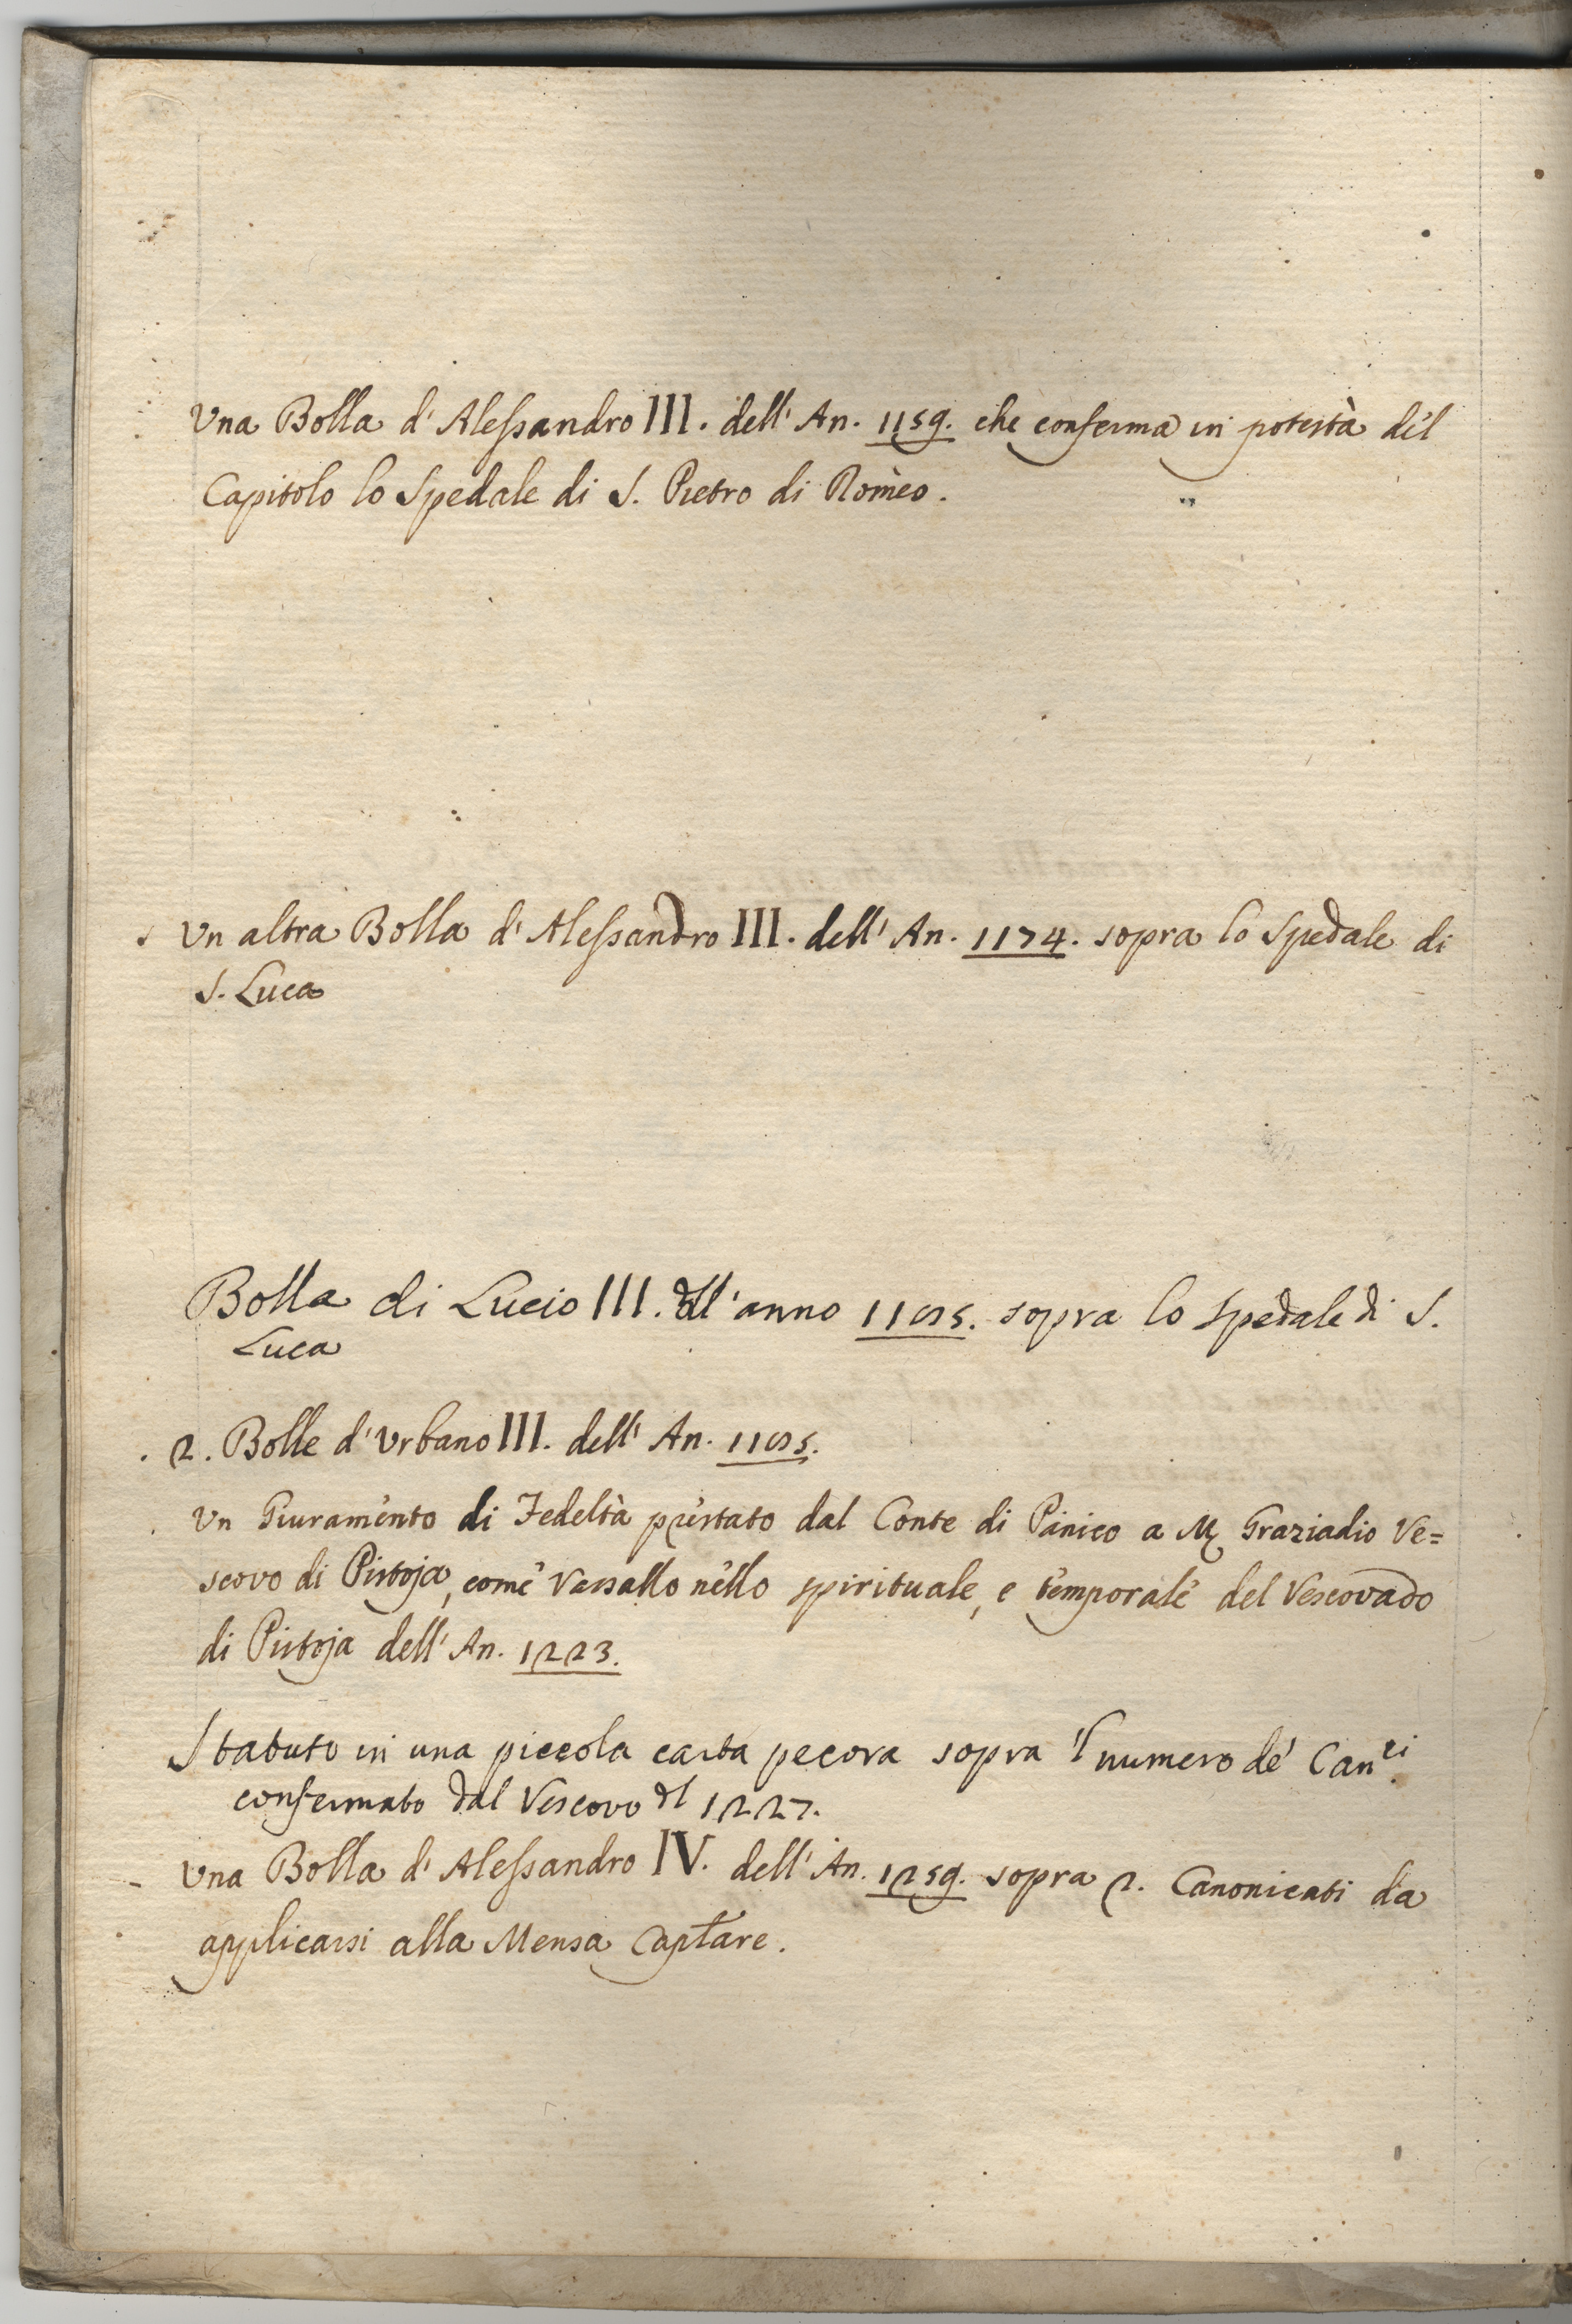 Una Bolla d'Alessandro III. dell'An. 1159. che conferma in potestà del
Capitolo lo Spedale di S. Pietro di Romeo.
Un altra Bolla d'Alessandro III. dell'An. 1174. sopra lo Spedale di
S. Luca
Bolla di Lucio III. dell'anno 1185. sopra lo Spedale di S.
Luca
2. Bolle d'Urbano III. dell'An. 1185.
Un Giuramento di Fedeltà prestato dal Conte di Panico a M. Graziadio Ve=
scovo di Pistoja, come Vassallo nello spirituale, e temporale del Vescovado
di Pistoja dell'An. 1223.
Statuto in una piccola carta pecora sopra il numero de' Can.ci
confermato dal Vescovo del 1227.
Una Bolla d'Alessandro IV. dell'An. 1259. sopra 2. Canonicati da
applicarsi alla Mensa Captare.